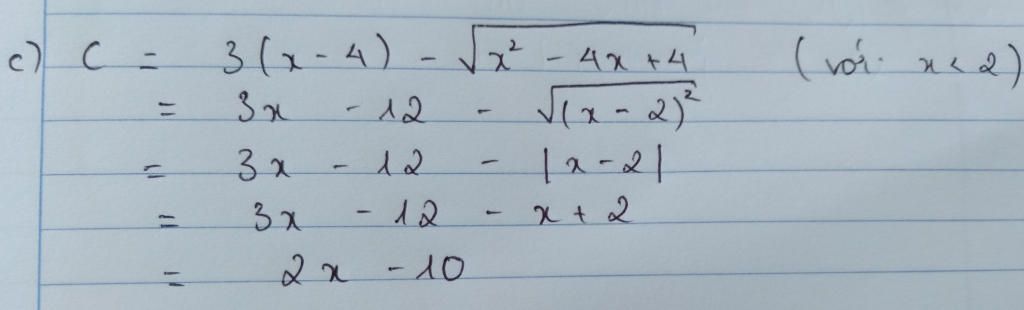 c) C = 3(x - 4) - √(x² - 4x + 4) (với x < 2)
= 3x - 12 - √(x - 2)²
= 3x - 12 - |x - 2|
= 3x - 12 - x + 2
= 2x - 10